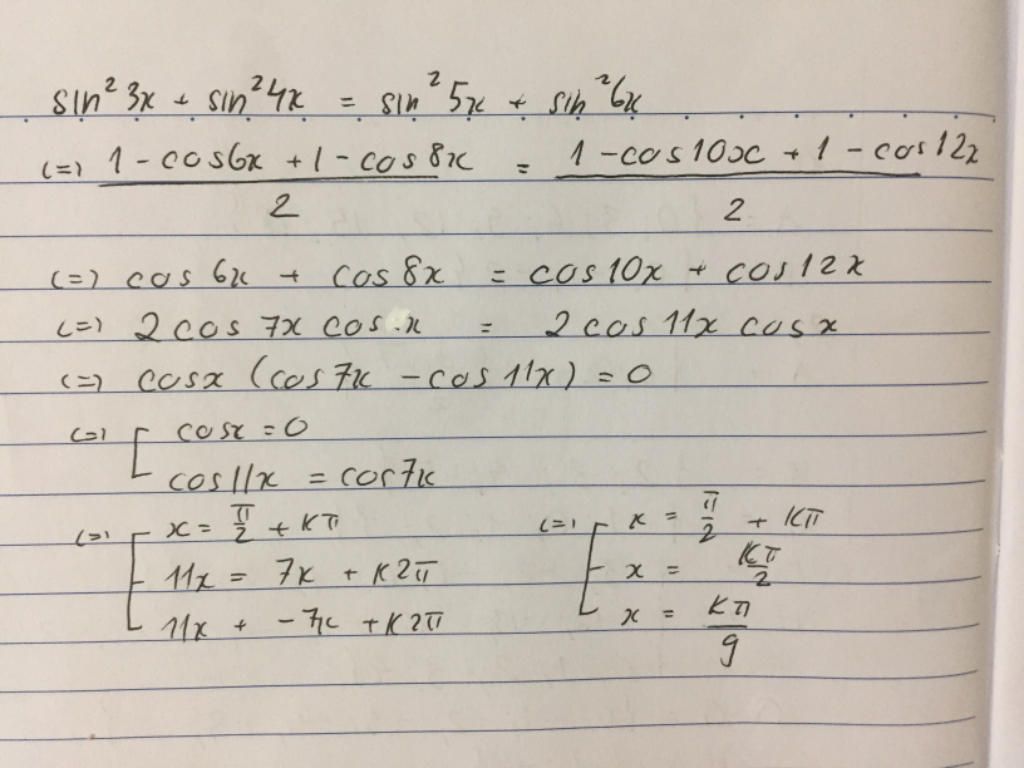 sin²3x + sin²4x = sin²5x + sin²6x
(=) (1 - cos6x + 1 - cos8x)/2 = (1 - cos10x + 1 - cos12x)/2
(=) cos6x + cos8x = cos10x + cos12x
(=) 2cos7x cosx = 2cos11x cosx
(=) cosx (cos7x - cos11x) = 0
(=) [ cosx = 0
cos11x = cos7x
(=) [ x = π/2 + kπ (=) [ x = π/2 + kπ
11x = 7x + k2π x = kπ/2
11x + -7x + k2π x = kπ/9